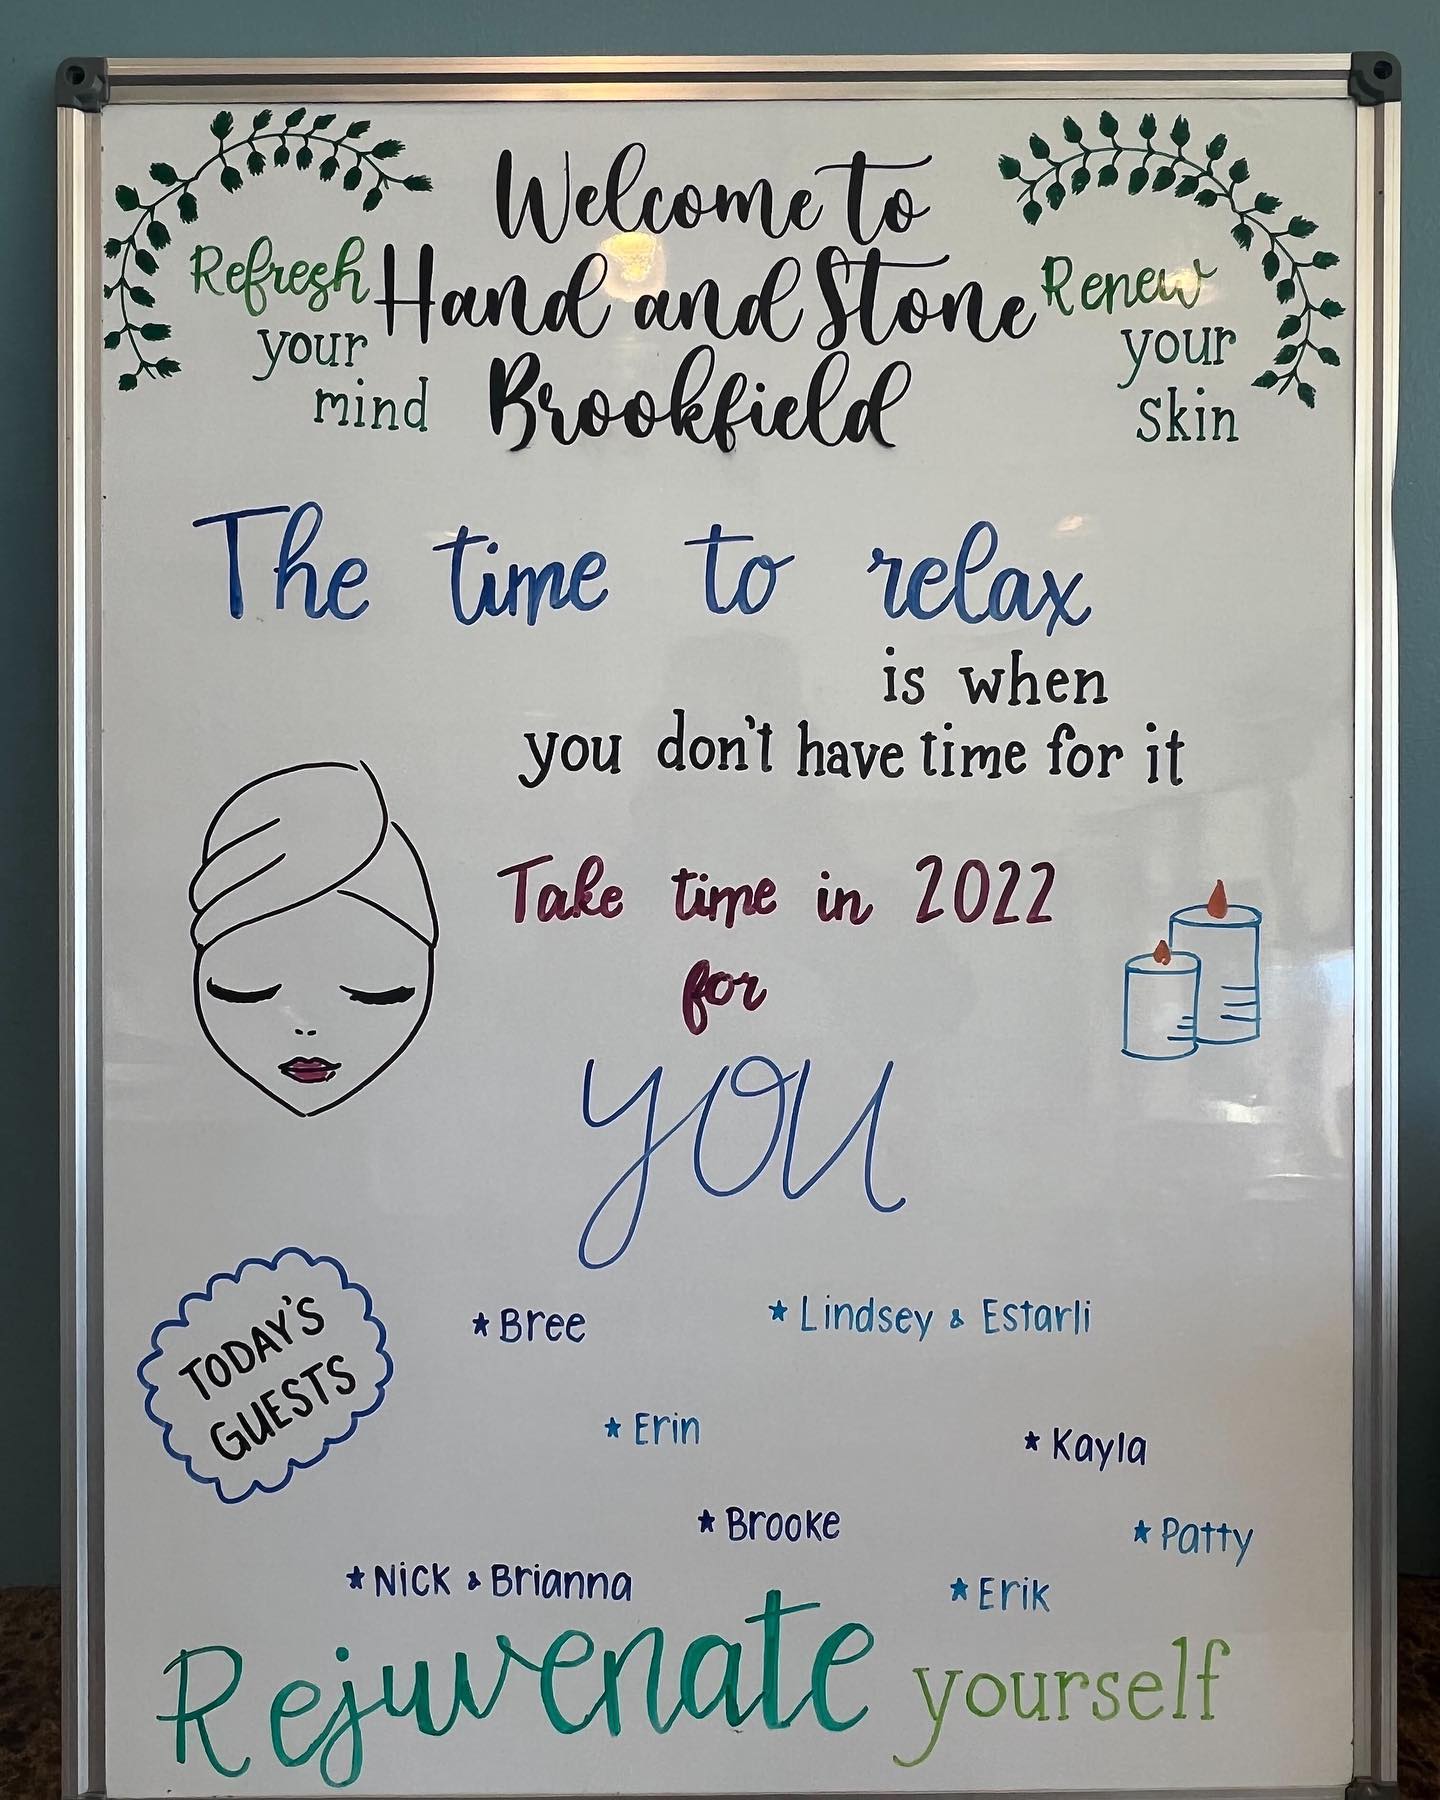 Welcome to
Hand and Stone
Brookfield
Refresh
your
mind
Renew
your
skin
The time to relax
is when
you don't have time for it
Take time in 2022
for
you
TODAY'S
GUESTS
*Bree
*Lindsey & Estarli
*Erin
*Kayla
*Brooke
*Patty
*Nick & Brianna
*Erik
Rejuvenate yourself